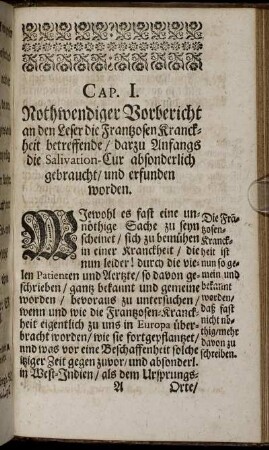 CAP. I.
Nothwendiger Vorbericht
an den Leser die Frantzosen Kranck-
heit betreffende / darzu Anfangs
die Salivation-Cur absonderlich
gebraucht / und erfunden
worden.
WJewohl es fast eine un-
nöthige Sache zu seyn
scheinet / sich zu bemühen
in einer Kranckheit / die
nun leider! durch die vie-
len Patienten und Aertzte / so davon ge-
schrieben / gantz bekannt und gemeine
worden / bevoraus zu untersuchen /
wenn und wie die Frantzosen-Kranck-
heit eigentlich zu uns in Europa über-
bracht worden / wie sie fortgepflantzet /
und was vor eine Beschaffenheit solche
itziger Zeit gegen zuvor / und absonderl.
in West-Jndien / als dem Ursprungs-
Die Frä-
tzosen-
Kranck-
heit ist
nun so ge-
mein und
bekannt
worden /
daß fast
nicht nö-
thig / mehr
davon zu
schreiben.
A Orte /